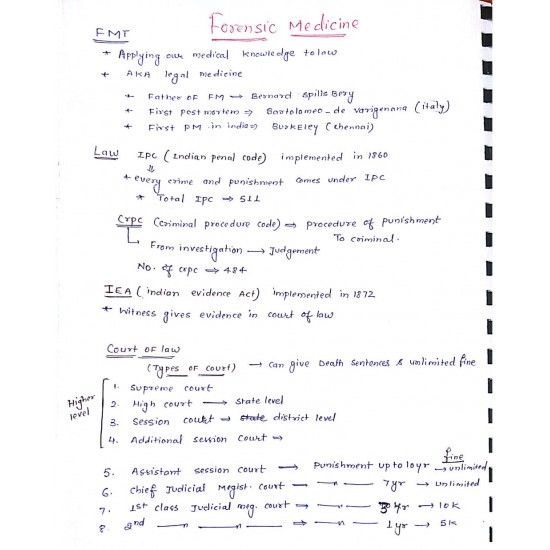 Forensic Medicine
FMT
* Applying our medical knowledge to law
* AKA legal medicine
* Father of FM → Bernard Spills Bery
* First postmortem ⇒ Bartolomeo-de varigenana (italy)
* First PM in india ⇒ BurkEley (chennai)
Law IPC (Indian penal code) implemented in 1860
⇓
* every crime and punishment comes under IPC
* Total IPC → 511
Crpc (criminal procedure code) ⇒ procedure of punishment
To criminal.
↳ From investigation → Judgement
No. of crpc ⇒ 484
IEA (indian evidence Act) implemented in 1872
* witness gives evidence in court of law
Court of law
(Types of court) → can give Death sentences & unlimited fine
Higher level
1. Supreme court
2. High court → state level
3. Session court → state district level
4. Additional session court →
fine
5. Assistant session court → Punishment up to 10yr → unlimited
6. Chief Judicial Megist. court → —"— 7yr → unlimited
7. 1st class Judicial meg. court → —"— 3yr → 10k
8. 2nd —"— —"— —"— → —"— 1yr → 5k